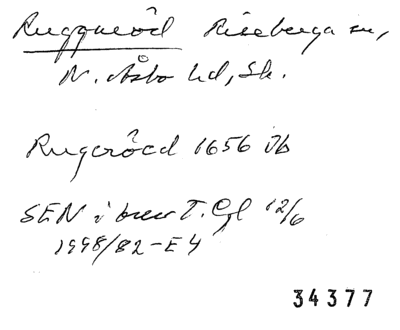 Ruggaröd Riseberga sn,
N. Åsbo hd, Sk.
Rugeröed 1656 Jb
SEN i brev T. Gl 12/6
1998/82-E4
34377